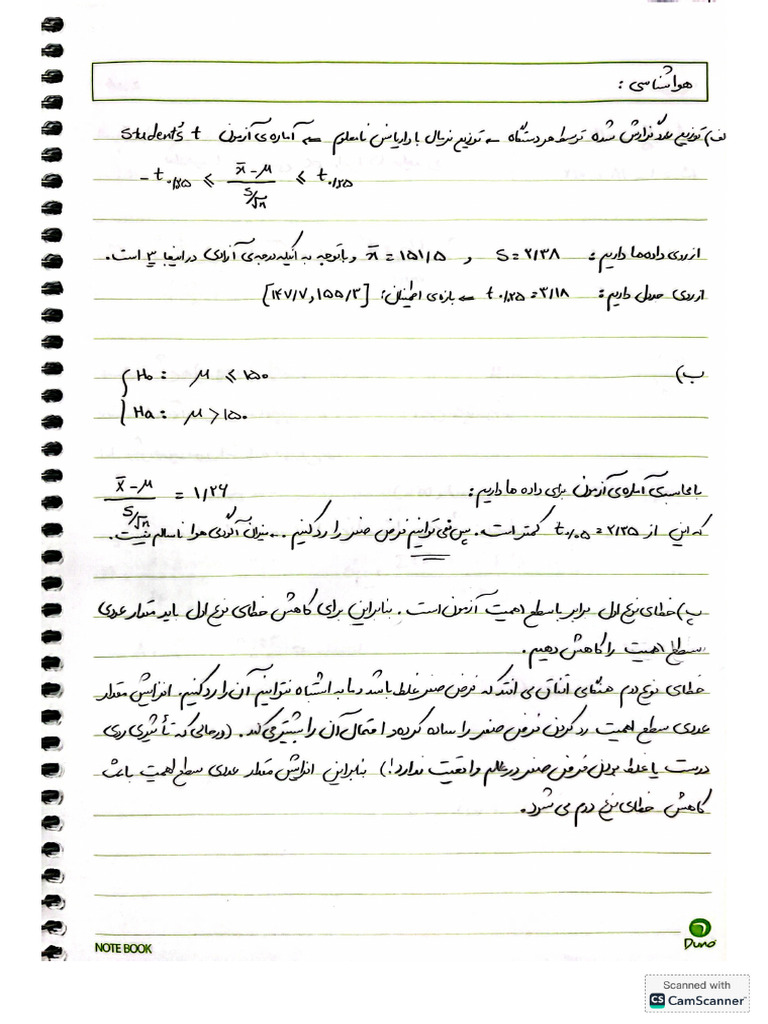 هواشناسی :
الف) توزیع عدد گزارش شده توسط هر دستگاه → توزیع نرمال با واریانس نامعلوم → آماره‌ی آزمون student's t
- t۰٫۰۲۵ ≤ (x̄ - μ) / (s/√n) ≤ t۰٫۰۲۵
از روی داده‌ها داریم: s = ۲/۳۸ و x̄ = ۱۵۱/۵ و با توجه به اینکه درجه‌ی آزادی در اینجا ۳ است.
از روی جدول داریم: t۰٫۰۲۵ = ۳/۱۸ → بازه‌ی اطمینان: [۱۴۷/۷ , ۱۵۵/۳]
ب)
H₀ : μ ≤ ۱۵۰
Ha : μ > ۱۵۰
با محاسبه‌ی آماره‌ی آزمون برای داده ها داریم: (x̄ - μ) / (s/√n) = ۱/۲۶
که این از t۰٫۰۵ = ۲/۳۵ کمتر است. پس نمی توانیم فرض صفر را رد کنیم → میزان آلودگی هوا ناسالم نیست.
پ) خطای نوع اول برابر با سطح اهمیت آزمون است. بنابراین برای کاهش خطای نوع اول باید مقدار عددی
سطح اهمیت را کاهش دهیم.
خطای نوع دوم هنگامی اتفاق می افتد که فرض صفر غلط باشد و ما به اشتباه نتوانیم آن را رد کنیم. افزایش مقدار
عددی سطح اهمیت رد کردن فرض صفر را ساده کرده و احتمال آن را بیشتر می‌کند. (درحالی که تأثیری روی
درست یا غلط بودن فرض صفر در عالم واقعیت ندارد!) بنابراین افزایش مقدار عددی سطح اهمیت باعث
کاهش خطای نوع دوم می شود.
NOTE BOOK
Duno
Scanned with
CS CamScanner